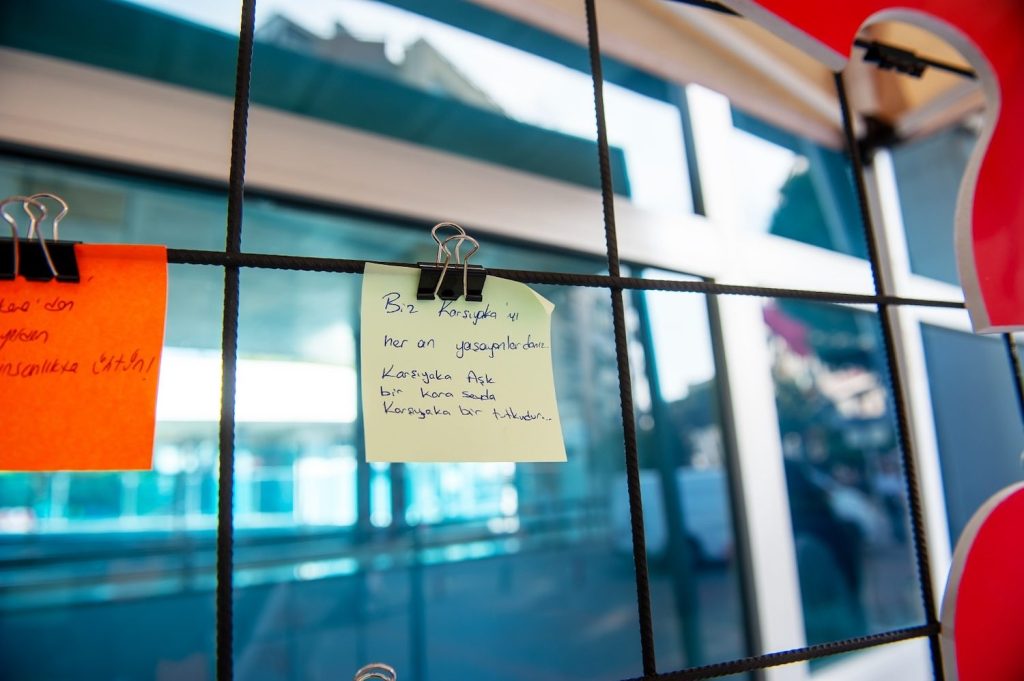 insanlıkta üstün!
Biz Karşıyaka'yı
her an yaşayanlardanız.
Karşıyaka Aşk
bir kara sevda
Karşıyaka bir tutkudur...